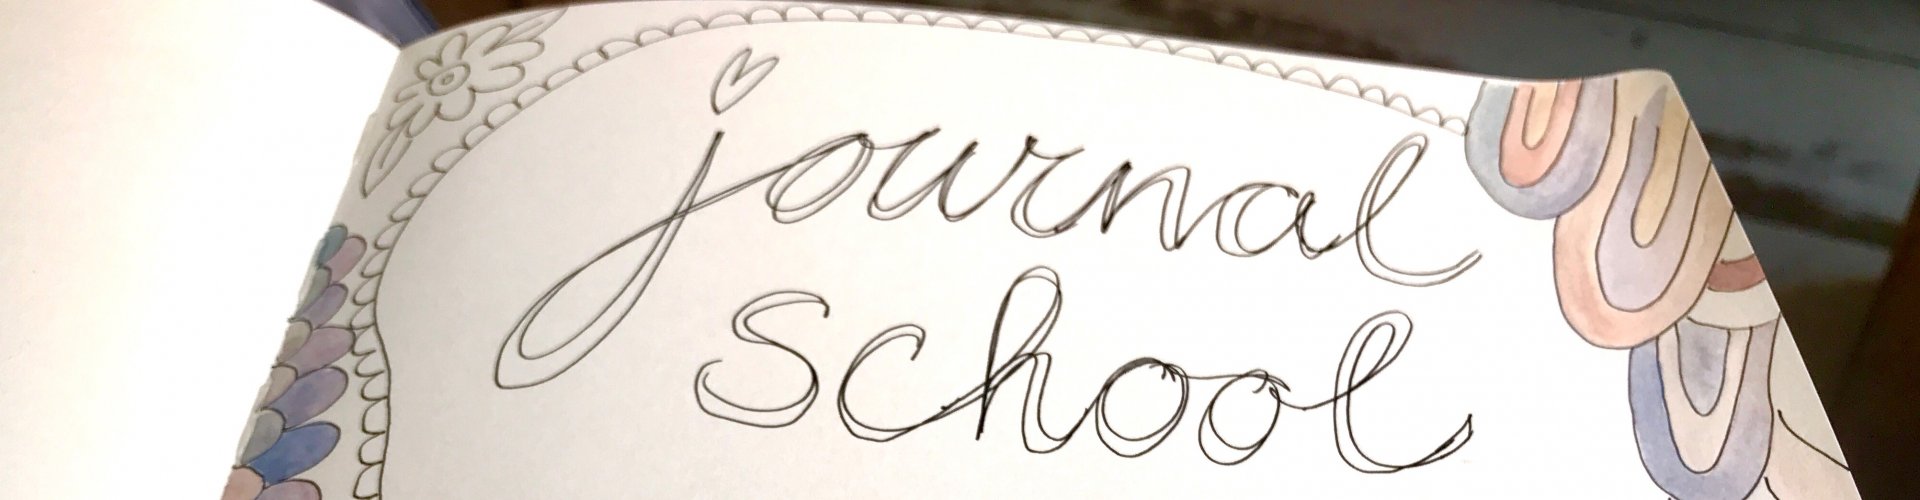 journal
school